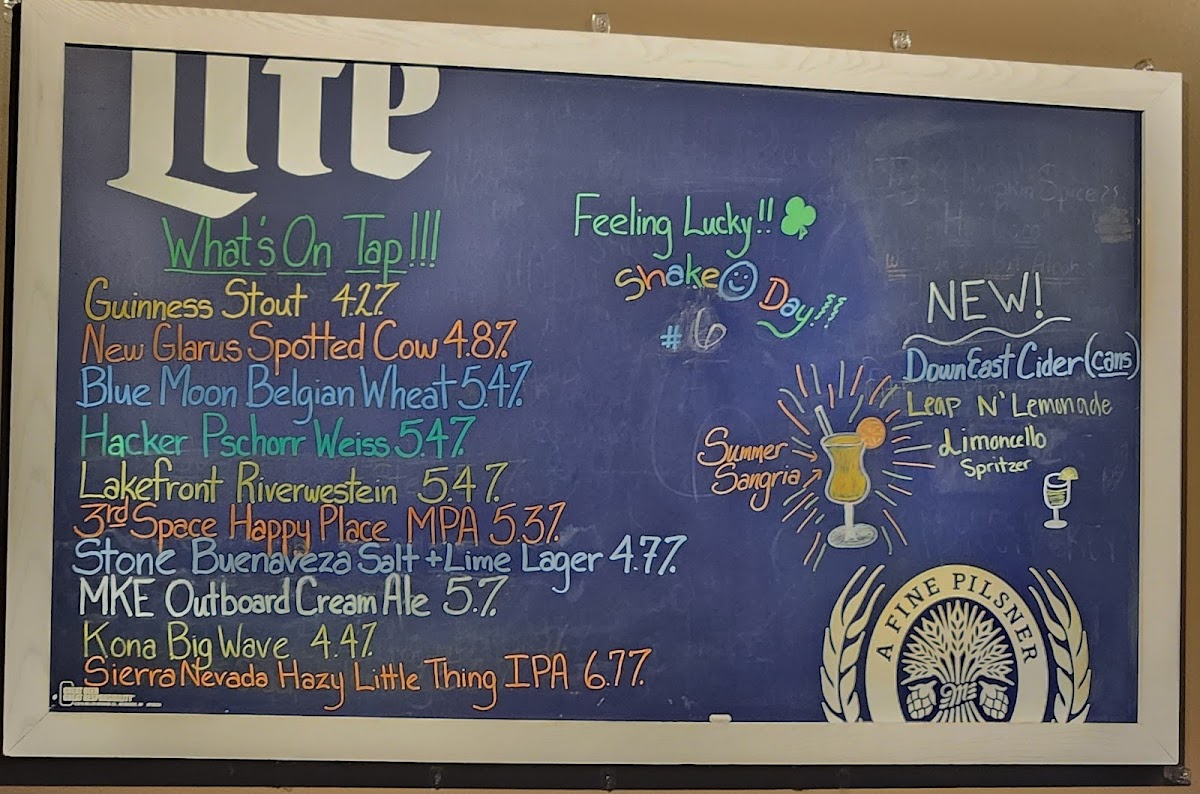 Lite
What's On Tap!!!
Guinness Stout 4.2%
New Glarus Spotted Cow 4.8%
Blue Moon Belgian Wheat 5.4%
Hacker Pschorr Weiss 5.4%
Lakefront Riverwestein 5.4%
3rd Space Happy Place MPA 5.3%
Stone Buenaveza Salt + Lime Lager 4.7%
MKE Outboard Cream Ale 5%
Kona Big Wave 4.4%
Sierra Nevada Hazy Little Thing IPA 6.7%
Feeling Lucky!!
Shake Day!!!
#6
Summer
Sangria
NEW!
DownEast Cider (cans)
Leap N' Lemonade
Limoncello
Spritzer
A FINE PILSNER